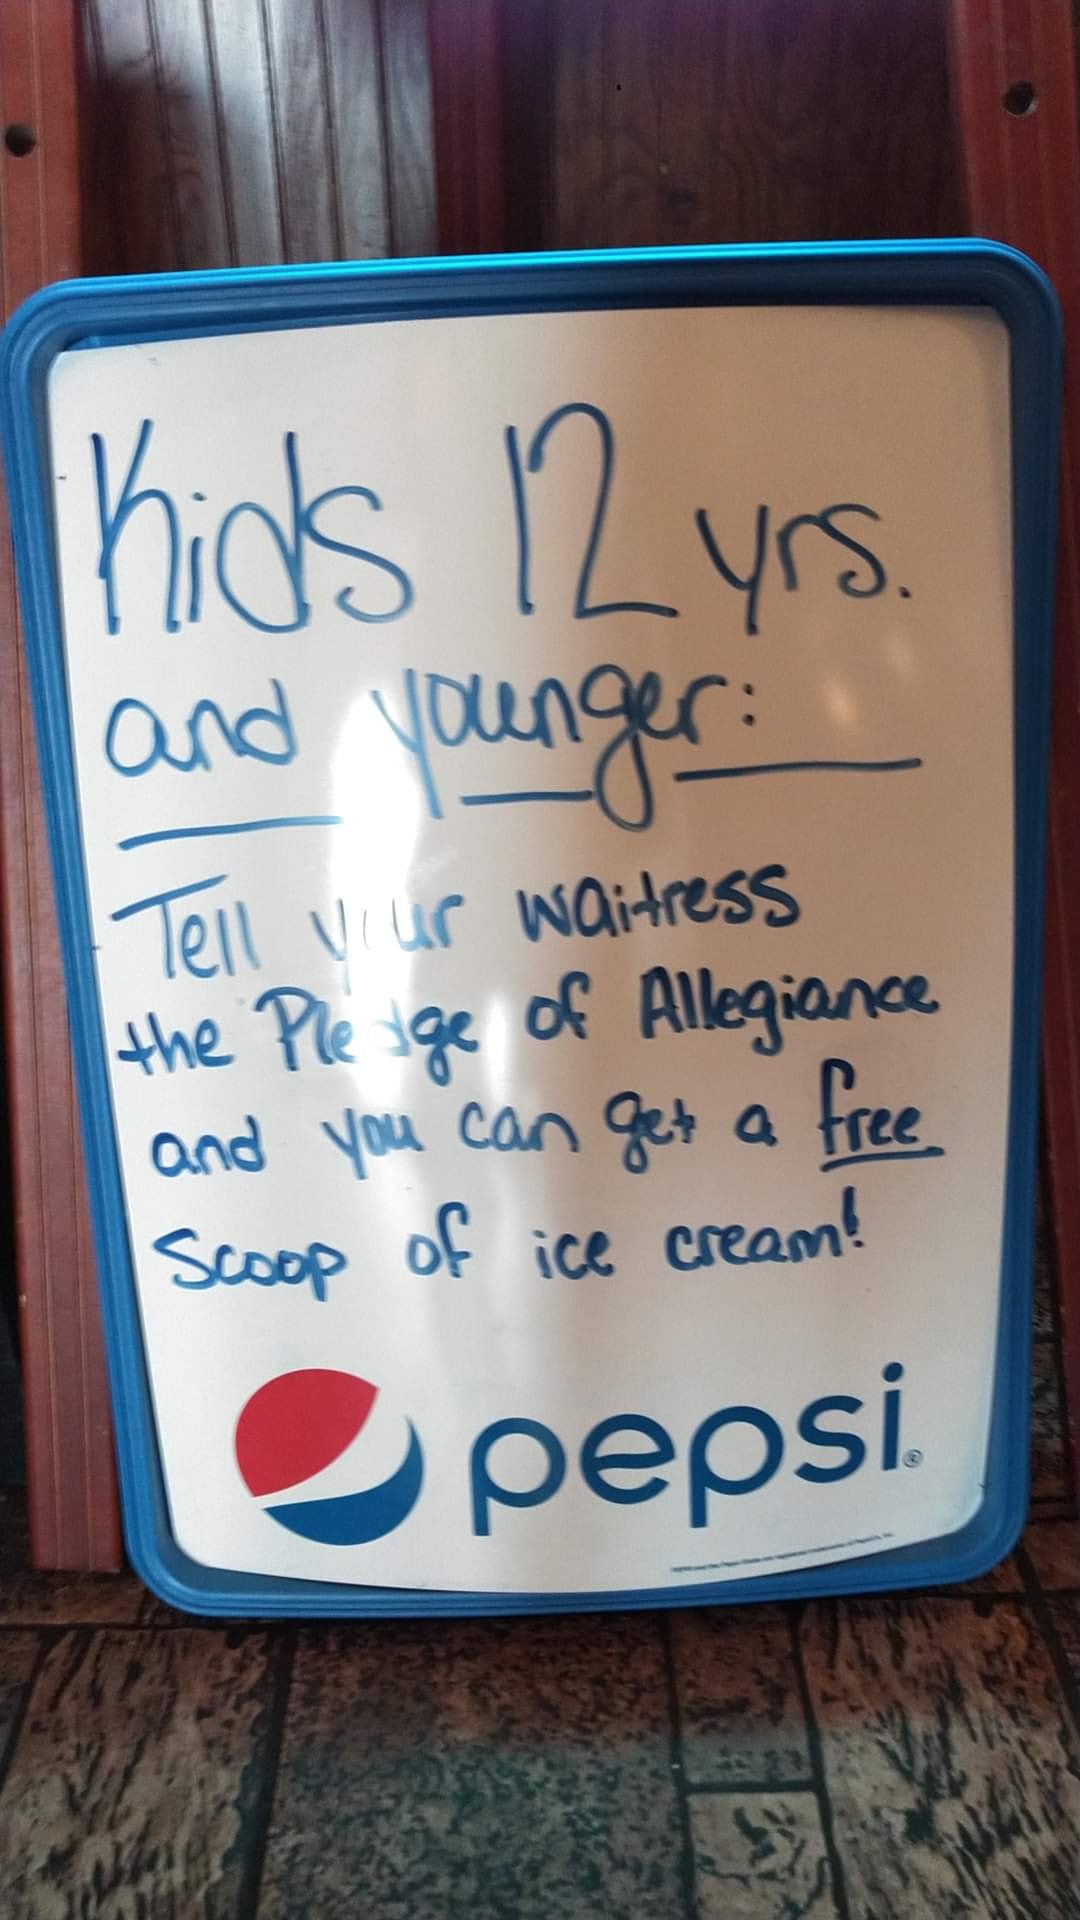 Kids 12 yrs.
and younger:
Tell your waitress
the Pledge of Allegiance
and you can get a free
Scoop of ice cream!
pepsi®